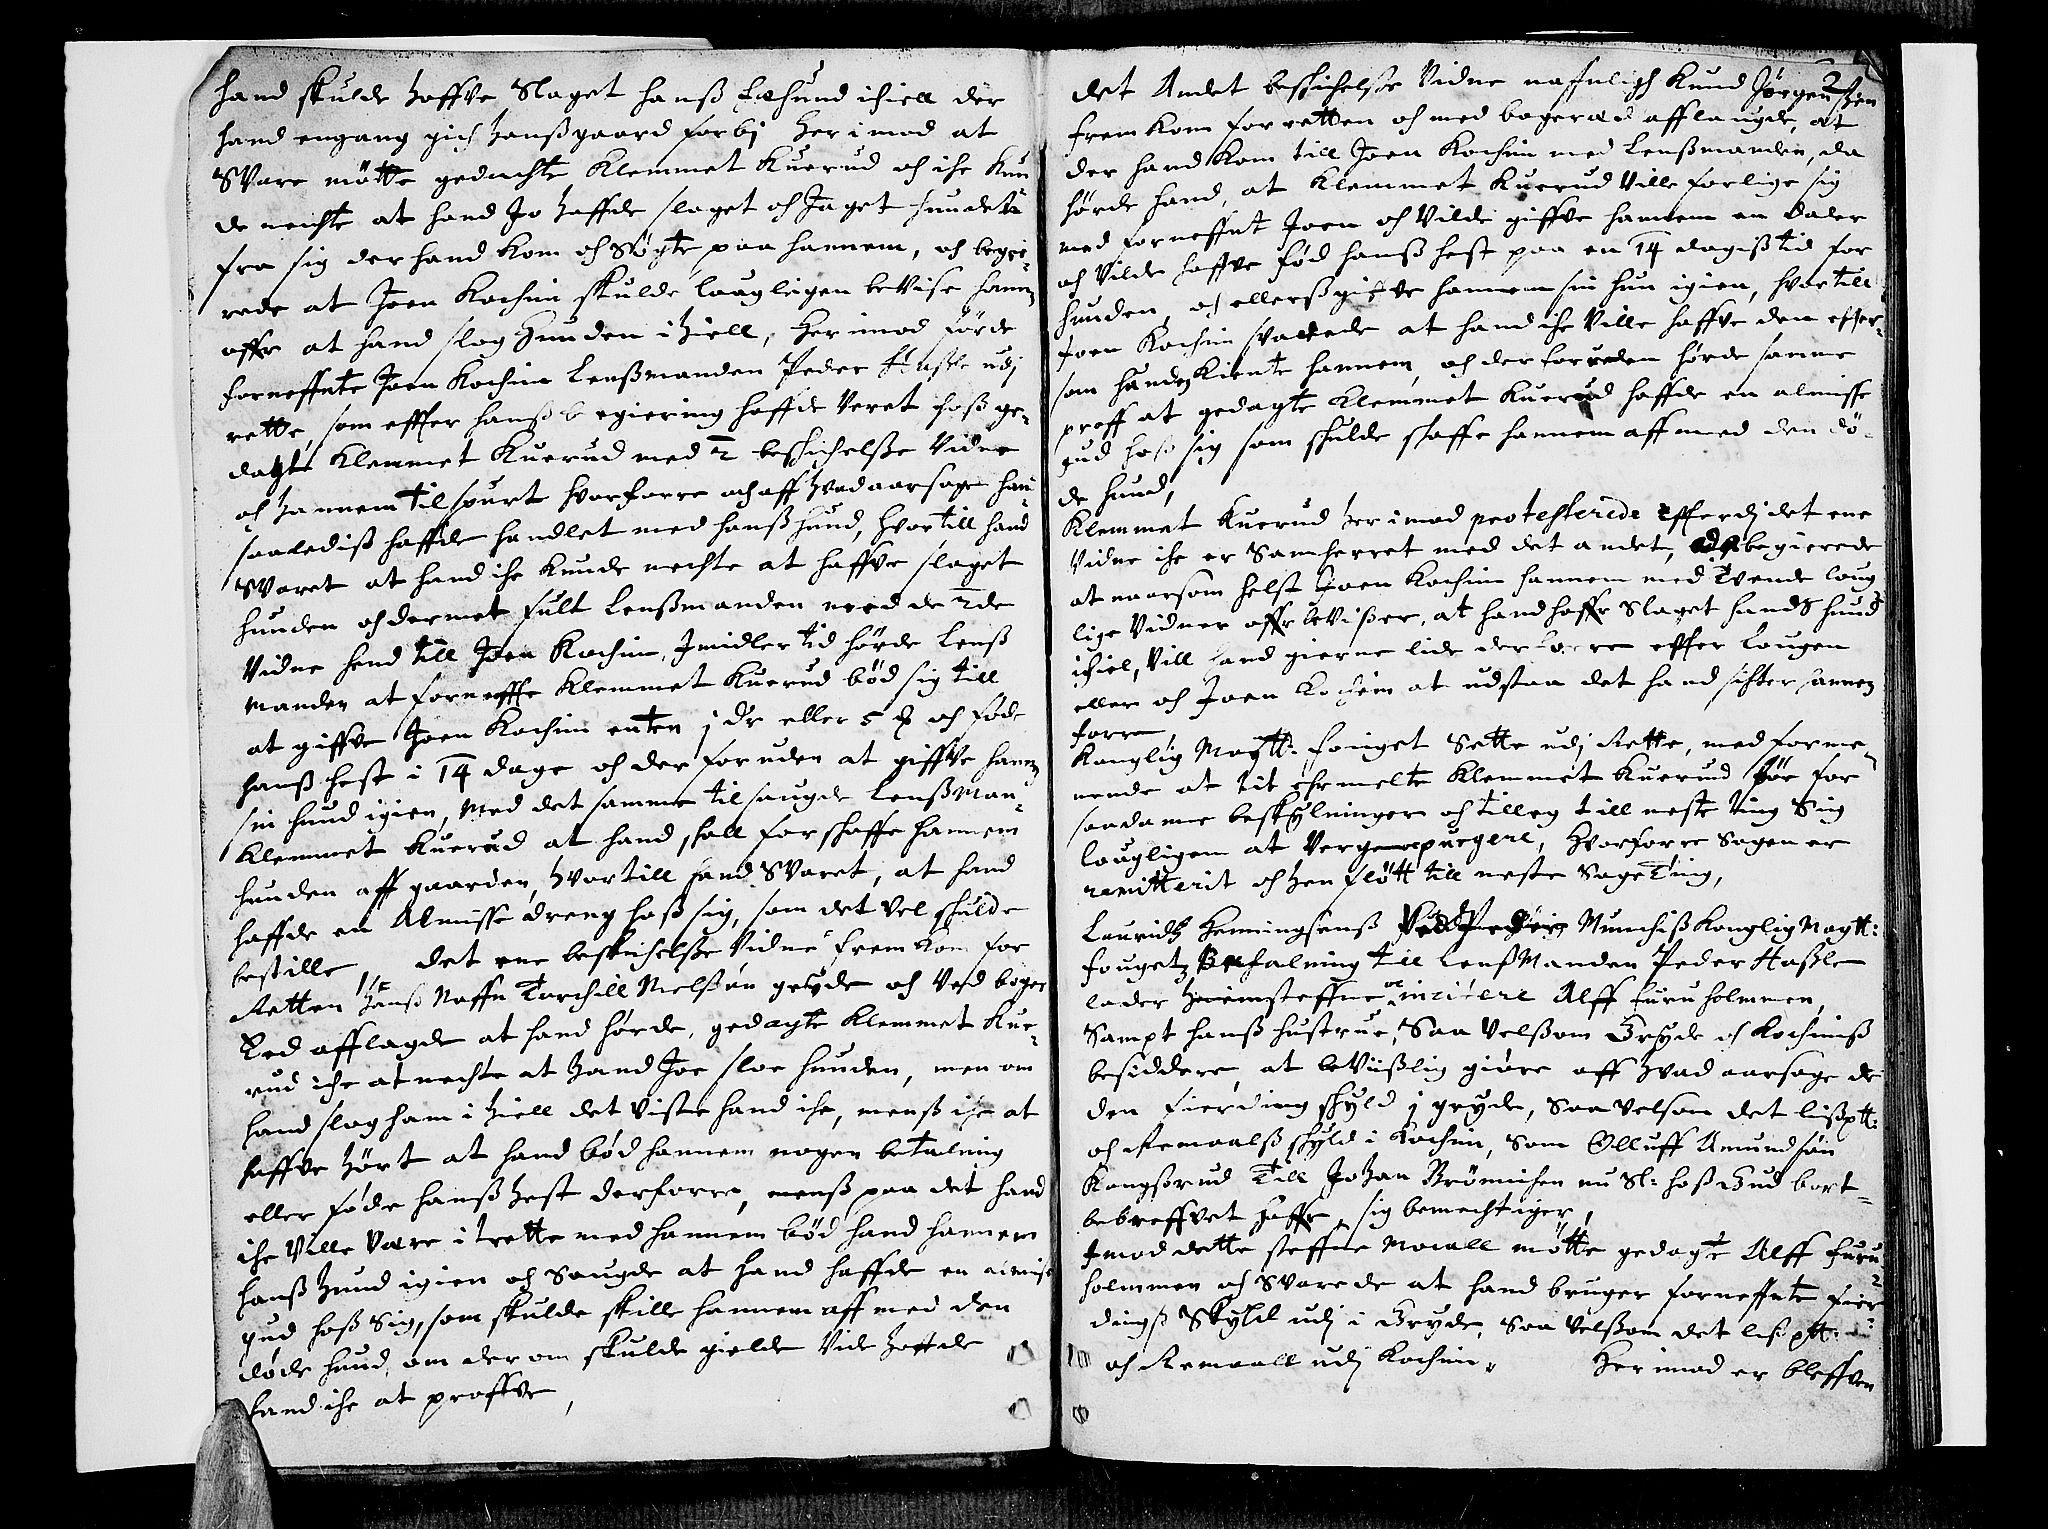 hand skulde haffve Slaget hanß Læhund ihiell der
hand engang gich hanß gaard forbj Her imod at
Svare mötte gedachte Klemmet Kuerud och iche Kun
de nechte at hand Jo haffde slaget och Jaget hunden
fra sig der hand kom och Søgte paa hannem, och begie-
rede at Joen Kochim skulde lougligen bevise hannem
offr at hand slog hunden ihiell, Her imod förde
forneffnte Joen Kochim Lenßmanden Peder Haßle udj
rette, som effter hanß begiering haffde veret hoß ge-
dagte Klemmet Kuerud med 2 beschichelße Vidne
och hannem tilspurt hvorforre och aff hvad aarsage hand
saaledis haffde handlet med hanß hund, hvortill hand
Svaret at hand iche kunde nechte at haffve slaget
hunden och dermet fult Lenßmanden med de 2de
Vidne hend till Joen Kochim, Jmidlertid hörde Lenß
manden at forneffte Klemmet Kuerud bød sig till
at giffve Joen Kochim enten j dr eller 5 och føde
hanß hest i 14 dage och der foruden at giffve hannem
sin hund igien, Med det samme tilsaugde Lenßman-
Klemmet Kuerud at hand skall forschaffe hannem
hunden aff gaarden, hvortill hand Svaret, at hand
haffde en Almisse dreng hoß sig, som det vel schulde
bestille // det ene beschichelße Vidne frem kom for
Retten hanß Naffn Torchill Nielßøn gryde och Ved boger
Eed afflagde at hand hørde, gedagte Klemmet Kue-
rud iche at nechte at hand Joe sloe hunden, men om
hand slog ham ihiell det viste hand iche, menß iche at
haffve hørt at hand bød hannem nogen betalning
eller føde hanß hest derforre, menß paa det hand
iche ville være i trette med hannem bød hand hannem
hanß hund igien och Saugde at hand haffde en almisse
gud hoß Sig, som skulde skille hannem aff med den
døde hund, om der om skulde gielde vide hafde
hand iche at proffve,
2
det Andet beschichelße Vidne naffnligh Knud Jørgenßen
frem kom for retten och med boger æd afflaugde, at
der hand kom till Joen Kochim med Lenßmanden, da
hørde hand, at Klemmet Kuerud Ville forlige sig
med forneffnt Joen och vilde giffve hannem en daler
och vilde haffve fød hanß hest paa en 14 dagiß tid for
hunden, och ellerß giffve hannem sin hun igien, hvortill
Joen Kochim svarede at hand iche ville haffve den effter-
som hunden kiente hannem, och der foruden hørde samme
proff at gedagte Klemmet Kuerud haffde en almisse
gud hoß sig som schulde skaffe hannem aff med den dø-
de hund,
Klemmet Kuerud her imod protesterede effterdj det ene
Vidne iche er Samherret med det andet, och begierede
at naarsom helst Joen Kochim hannem med tvende loug
lige Vidner offr beviißer, at hand haffr Slaget hands hund
ihiel, vill hand gierne lide derforre effter Lougen
eller och Joen Kochim at udstaa det hand sichter hannem
forre,
Konglig Maytt: fouget Sette udj Rette, med forme-
nende at tit ehrmelte Klemmet Kuerud bør for
saadanne beskylninger och tilleg till neste ting Sig
lougligen at Verge purgere, hvorforre Sagen er
remitterit och hen fløtt till neste Sage ting,
Lauridtz Henningsenß Munchiß Konglig Maytt:
fougetz Befalning till Lenßmanden Peder Haßle
lader hiemsteffne citere Alff furuholmmen,
Sampt hanß hustrue, Saa velßom Gryde och Kochimß
besiddere, at beviißlig giøre aff hvad aarsage de
den fierding skyld j gryde, Saa velsom det lißptt:
och Remaalß skyld i Kochim, som Olluff Amundßön
Kongßrud till Johan Brömichen nu Sl: hoß Gud bort-
bebreffvet haffr, sig bemechtiger,
Imod dette steffne maall mötte gedagte Alff furu
holmmen och Svarede at hand bruger forneffnte fier
dingß Skyld udj i Gryde, Saa velßom det lißptt:
och Remaall udj Kochim. Her imod er bleffven